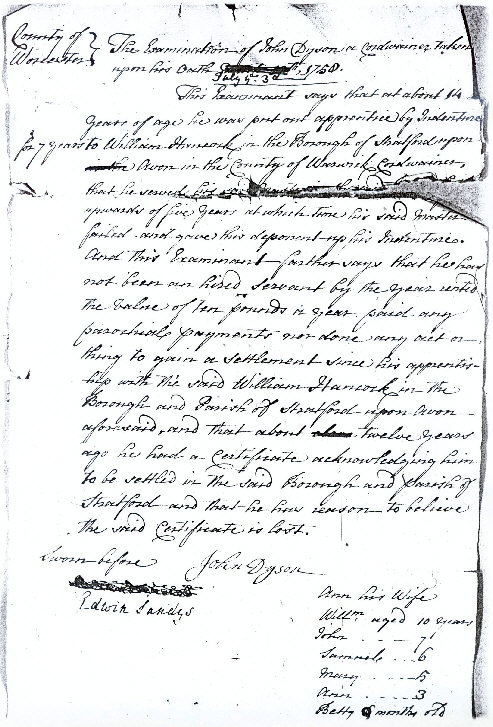 County of
Worcester
The Examination of John Dyson a Cordwainer taken
upon his Oath 1758.
July ye 3d
This Examinant says that at about 14
years of age he was put out apprentice by Indenture
for 7 years to William Hancock in the Borough of Stratford upon
Avon in the County of Warwick Cordwainer,
that he served his said
upwards of five years at which time his said Master
failed and gave this deponent up his Indenture.
And this Examinant farther says that he has
not been an hired Servant by the year rented
the value of ten pounds a year paid any
parochial payments nor done any act or
thing to gain a settlement since his apprentis-
hip with the said William Hancock in the
Borough and Parish of Stratford upon Avon
aforesaid, and that about twelve years
ago he had a Certificate acknowledging him
to be settled in the said Borough and parish of
Stratford and that he has reason to believe
the said Certificate is lost.
Sworn before John Dyson
Edwin Sandys
Ann his Wife
Willm aged 10 years
John - - - 7
Samuel - - - 6
Mary - - - 5
Ann - - - 3
Betty months old